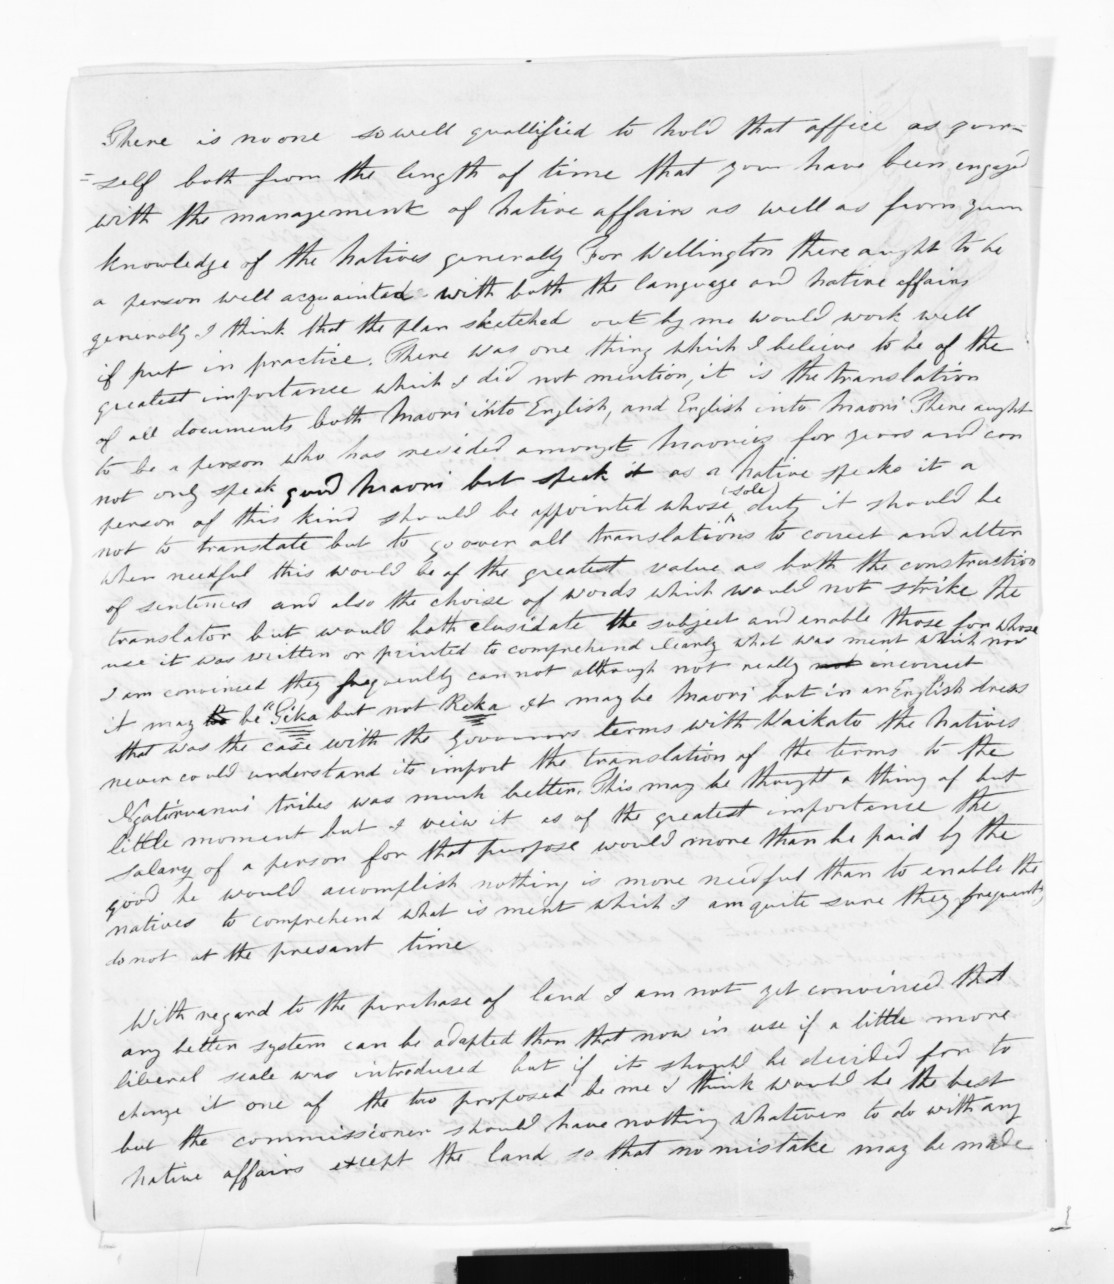 There is no one so well quallified to hold that office as your=
=self both from the length of time that you have been engaged
with the management of native affairs as well as from your
knowledge of the Natives generally For Wellington there aught to be
a person well acquainted with both the language and native affairs
generally I think that the plan sketched out by me would work well
if put in practice. There was one thing which I believe to be of the
greatest importance which I did not mention, it is the translation
of all documents both Maori into English, and English into Maori. There aught
to be a person who has resided amongst Maories for years and can
not only speak good Maori but speak it as a Native speaks it a
person of this kind should be appointed whose (sole) duty it should be
not to translate but to go over all translations to correct and alter
when needful this would be of the greatest value as both the construction
of sentences and also the choise of words which would not strike the
translator but would both elusidate the subject and enable those for whose
use it was written or printed to comprehend clearly what was ment which now
I am convinced they frequently can not although not really not incorrect
it may to be "Tika but not Reka It may be Maori but in an English dress
that was the case with the Governors terms with Waikato the natives
never could understand its import the translation of the terms to the
Ngatiruanui tribes was much better. This may be thought a thing of but
little moment but I veiw it as of the greatest importance the
salary of a person for that purpose would more than be paid by the
good he would accomplish nothing is more needful than to enable the
natives to comprehend what is ment which I am quite sure they frequently
do not at the presant time
With regard to the purchase of land I am not yet convinced that
any better system can be adapted than that now in use if a little more
liberal scale was introduced but if it should be decided for to
change it one of the two proposed be me I think would be the best
but the commissioner should have nothing whatever to do with any
native affairs except the land so that no mistake may be made